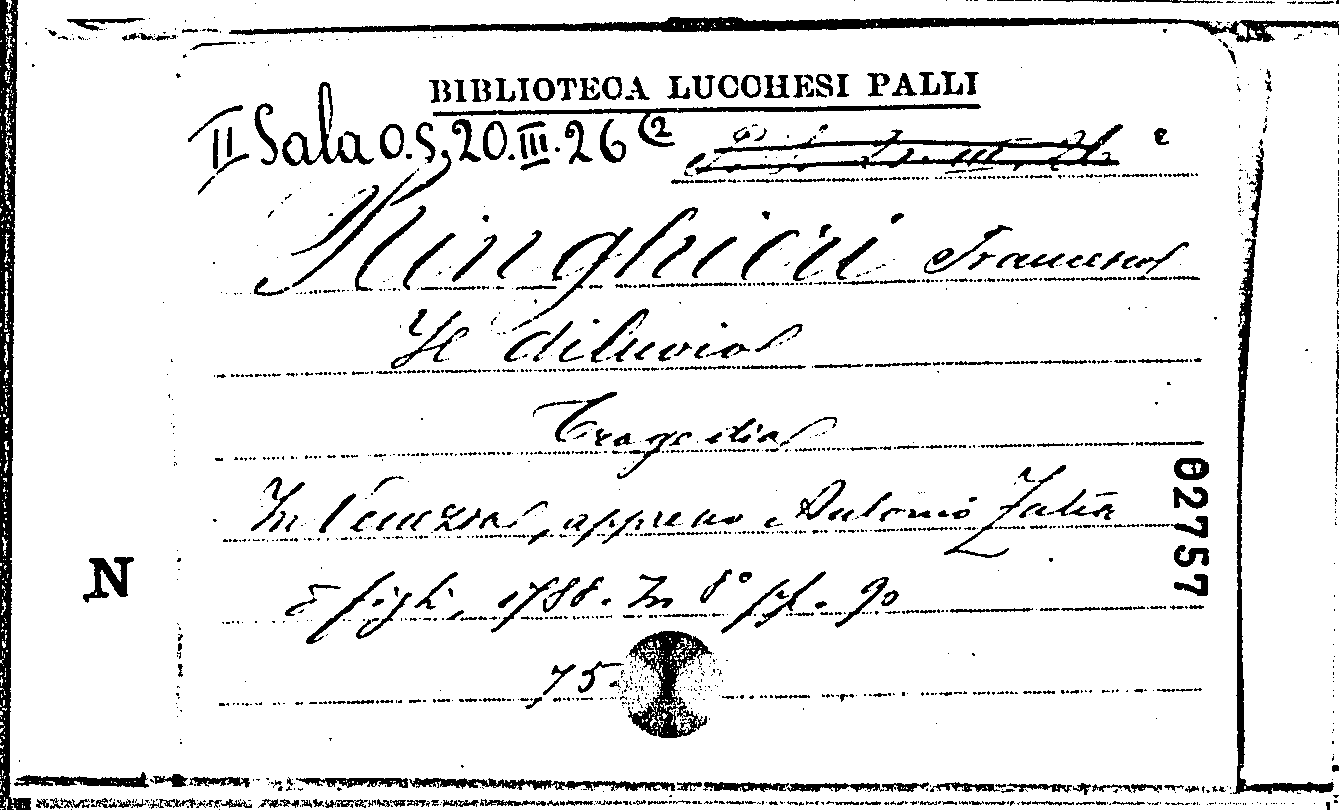 BIBLIOTECA LUCCHESI PALLI
II Sala O.S, 20.III.26 (2
Ringhieri Francesco
Il diluvio
Tragedia
In Venezia, appresso Antonio Zatta
e figli, 1788. In 8° pp. 90
75
02757
N